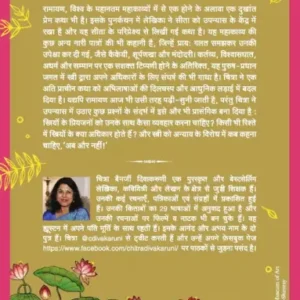 रामायण, विश्व के महानतम महाकाव्यों में से एक होने के अलावा एक दुखांत
प्रेम कथा भी है। इसके पुनर्कथन में लेखिका ने सीता को उपन्यास के केंद्र में
रखा है और यह सीता के परिप्रेक्ष्य से लिखी गई कथा है। यह महाकाव्य की
कुछ अन्य नारी पात्रों की भी कहानी है, जिन्हें प्रायः गलत समझकर उनकी
उपेक्षा कर दी गई, जैसे कैकेयी, शूर्पणखा और मंदोदरी। कर्तव्य, विश्वासघात,
अधर्म और सम्मान पर एक सशक्त टिप्पणी होने के अतिरिक्त, यह पुरुष-प्रधान
जगत में स्त्री द्वारा अपने अधिकारों के लिए संघर्ष की भी गाथा है। चित्रा ने एक
अति प्राचीन कथा को अभिलाषाओं की दिलचस्प और आधुनिक लड़ाई में बदल
दिया है। यद्यपि रामायण आज भी उसी तरह पढ़ी-सुनी जाती है, परंतु चित्रा ने
उपन्यास में उठाए कुछ प्रश्नों के संदर्भ में इसे और भी प्रासंगिक बना दिया है :
स्त्रियों के प्रियजनों को उनके साथ कैसा व्यवहार करना चाहिए? किसी भी रिश्ते
में स्त्रियों के क्या अधिकार होते हैं? और स्त्री को अन्याय के विरोध में कब कहना
चाहिए, 'बस और नहीं!'
चित्रा बैनर्जी दिवाकरुणी एक पुरस्कृत और बेस्टसेलिंग
लेखिका, कवियित्री और लेखन के क्षेत्र से जुड़ी शिक्षक हैं।
उनकी कई रचनाएँ, पत्रिकाओं एवं संग्रहों में प्रकाशित हुई
हैं। उनकी किताबों का 29 भाषाओं में अनुवाद हुआ है और
उनकी रचनाओं पर फ़िल्म व नाटक भी बन चुके हैं। वह
ह्यूस्टन में अपने पति मूर्ति के साथ रहती हैं। इनके आनंद और अभय नाम के दो
पुत्र हैं। चित्रा @cdivakaruni से ट्वीट करती हैं और उन्हें अपने फ़ेसबुक पेज
https://www.facebook.com/chitradivakaruni/ पर पाठकों से जुड़ना पसंद है।